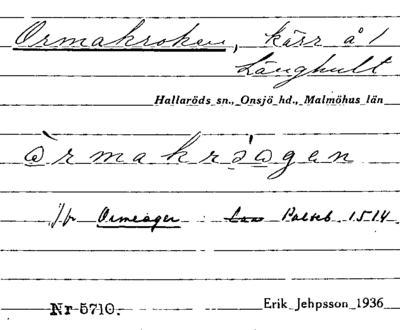 Ormakroken, kärr å 1
Långhult
Hallaröds sn., Onsjö hd., Malmöhus län
Jfr Ormeager Palteb. 1514
Nr 5710. Erik Jehpsson 1936